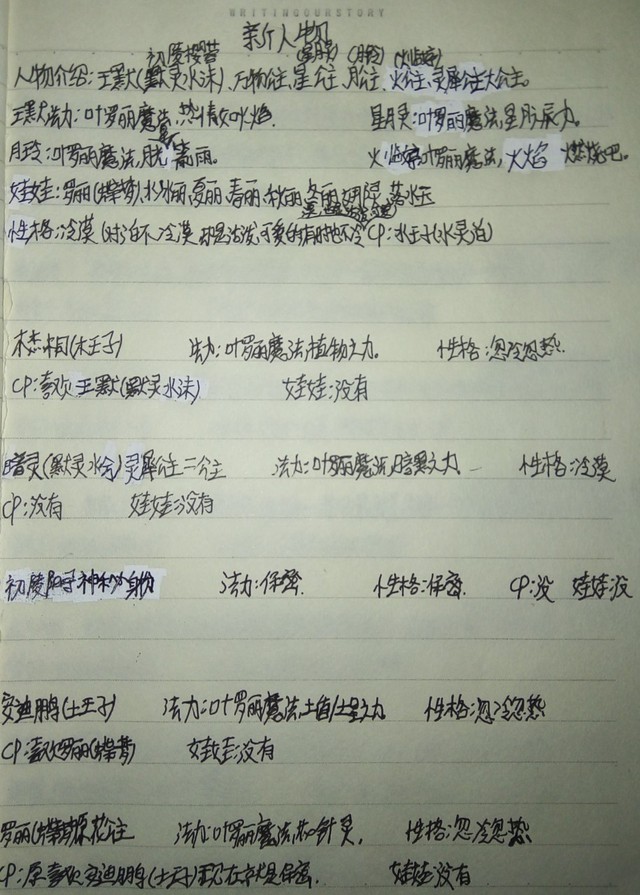 WRITINGOURSTORY
新人物
初陵樱 (星月灵) (月玲) (火临)
人物介绍:王默(默灵水沫)、万物公主、星公主、月公主、火公主、灵犀公主大公主。
王默法力:叶罗丽魔法,热情如火焰. 星月灵:叶罗丽魔法,星辰力。
月玲:叶罗丽魔法,雨。 火临叶罗丽魔法,火焰 燃烧吧.
娃娃:罗丽、水冰丽、夏丽、春丽、秋丽、冬丽、落水玉
性格:冷漠(对泊不冷漠 可爱的有时也不冷 CP:水王子(水灵泊)
木杰相(木王子) 法力:叶罗丽魔法,植物之力。 性格:忽冷忽热.
CP:喜欢王默(默灵水沫) 娃娃:没有
暗灵(默灵水)灵犀公主二公主 法力:叶罗丽魔法,暗黑之力 性格:冷漠
CP:没有 娃娃:没有
初陵 神秘身份 法力:保密. 性格:保密. CP:没 娃娃:没
安迪鹏(土王子) 法力:叶罗丽魔法,土之力 性格:忽冷忽热
CP:喜欢罗丽 娃娃:没有
罗丽花公主 法力:叶罗丽魔法, 性格:忽冷忽热
CP:原喜欢安迪鹏(土王子)现在保密. 娃娃:没有